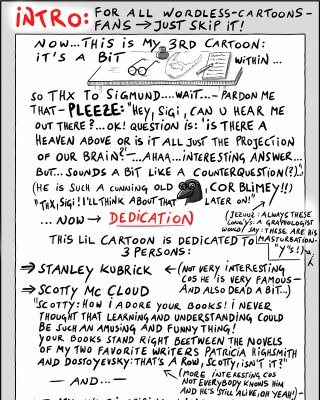 INTRO: FOR ALL WORDLESS-CARTOONS-
FANS → JUST SKIP IT!
NOW...THIS IS MY 3RD CARTOON:
IT'S A BIT WITHIN ...
SO THX TO SIGMUND....WAIT...- PARDON ME
THAT - PLEEZE: "HEY, SIGI, CAN U HEAR ME
OUT THERE?...OK! QUESTION IS: 'IS THERE A
HEAVEN ABOVE OR IS IT ALL JUST THE PROJECTION
OF OUR BRAIN?'-...AHAA...INTERESTING ANSWER...
BUT...SOUNDS A BIT LIKE A COUNTERQUESTION(?)."
(HE IS SUCH A CUNNING OLD , COR BLIMEY!!)
"THX, SIGI! I'LL THINK ABOUT THAT LATER ON!"
... NOW → DEDICATION
(JEZUUZ: ALWAYS THESE
"Y"S: A GRAPHOLOGIST
WOULD SAY: THESE ARE HIS
MASTURBATION-
"Y"S!)
THIS LIL CARTOON IS DEDICATED TO
3 PERSONS:
⇒ STANLEY KUBRICK ← (NOT VERY INTERESTING
COS HE IS VERY FAMOUS -
AND ALSO DEAD A BIT...)
⇒ SCOTTY MC CLOUD
"SCOTTY: HOW I ADORE YOUR BOOKS! I NEVER
THOUGHT THAT LEARNING AND UNDERSTANDING COULD
BE SUCH AN AMUSING AND FUNNY THING!
YOUR BOOKS STAND RIGHT BEETWEEN THE NOVELS
OF MY TWO FAVORITE WRITERS PATRICIA HIGHSMITH
AND DOSTOYEVSKY: THAT'S A ROW, SCOTTY, ISN'T IT?"
(MORE INTERESTING COS
NOT EVERYBODY KNOWS HIM
AND HE'S STILL ALIVE, OH YEAH!)-
— AND... —